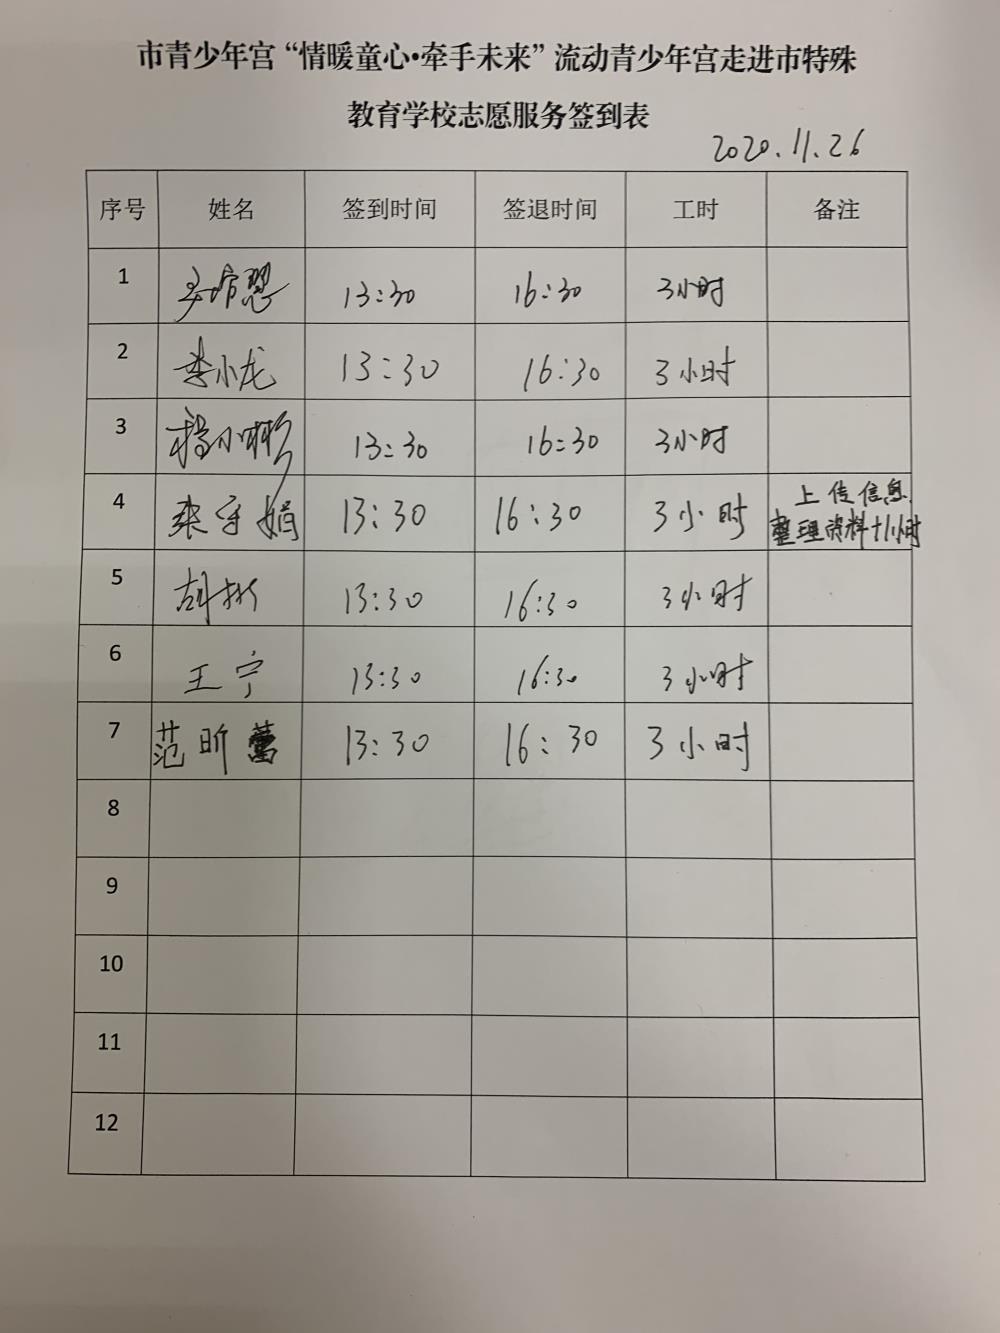 市青少年宫“情暖童心•牵手未来”流动青少年宫走进市特殊
教育学校志愿服务签到表
2020.11.26
序号 姓名 签到时间 签退时间 工时 备注
1 13:30 16:30 3小时
2 李小龙 13:30 16:30 3小时
3 杨小彬 13:30 16:30 3小时
4 娟 13:30 16:30 3小时 上传信息
整理资料+1小时
5 胡彬 13:30 16:30 3小时
6 王宁 13:30 16:30 3小时
7 范昕蕾 13:30 16:30 3小时
8
9
10
11
12